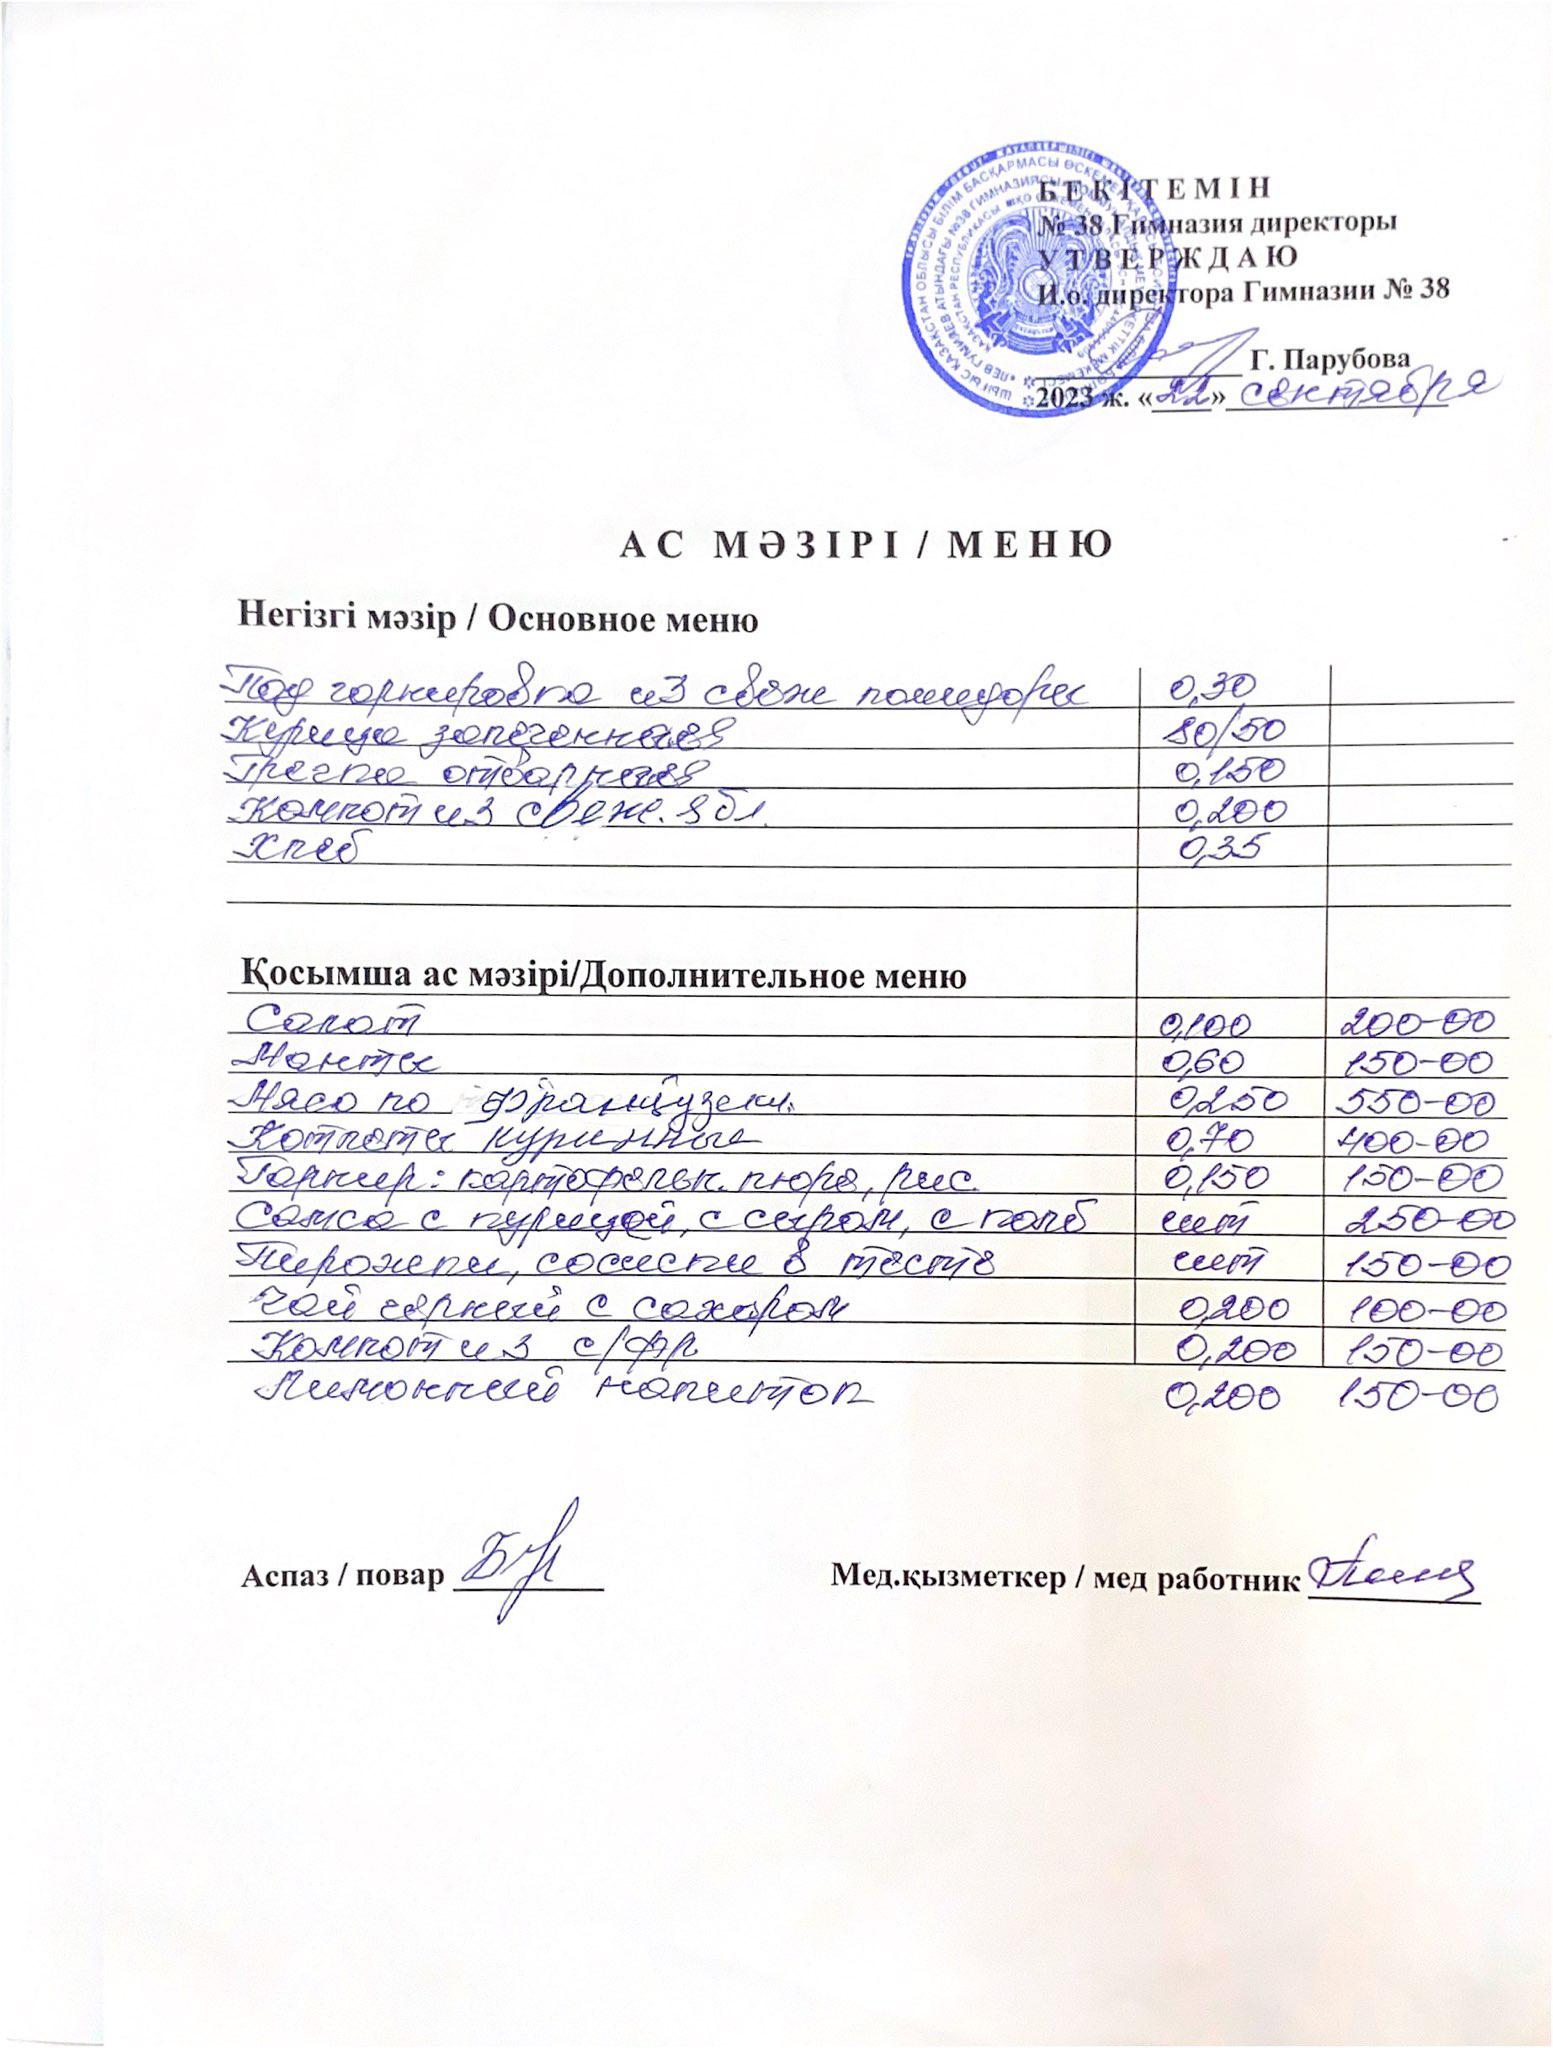 БЕКІТЕМІН
№ 38 Гимназия директоры
УТВЕРЖДАЮ
И.о. директора Гимназии № 38
Г. Парубова
2023 ж. «22» сентября
АС МӘЗІРІ / МЕНЮ
Негізгі мәзір / Основное меню
Под гарнировка из свеж помидоры 0,30
Курица запеченная 80/50
Гречка отварная 0,150
Компот из свеж. ябл. 0,200
Хлеб 0,35
Қосымша ас мәзірі/Дополнительное меню
Салат 0,100 200-00
Манты 0,60 150-00
Мясо по французски. 0,250 550-00
Котлеты куринные 0,70 400-00
Гарнир: картофельн. пюре, рис. 0,150 150-00
Самса с курицей, с сыром, с колб шт 250-00
Пирожки, сосиски в тесте шт 150-00
Чай черный с сахаром 0,200 100-00
Компот из с/фр 0,200 150-00
Лимонный напиток 0,200 150-00
Аспаз / повар Мед.қызметкер / мед работник